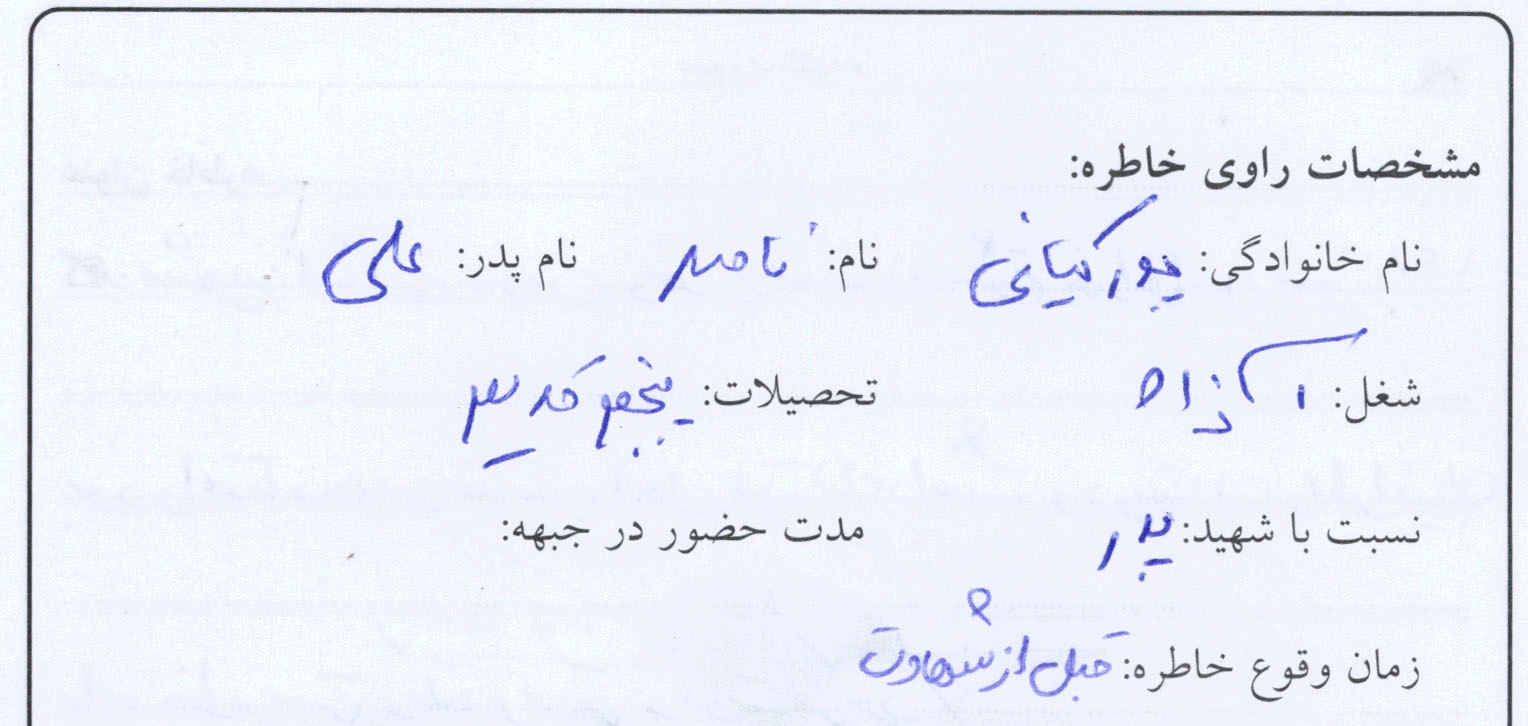 مشخصات راوی خاطره:
نام خانوادگی: پورکیانی نام: ناصر نام پدر: علی
شغل: آزاد تحصیلات: پنجم قدیم
نسبت با شهید: پدر مدت حضور در جبهه:
زمان وقوع خاطره: قبل از شهادت